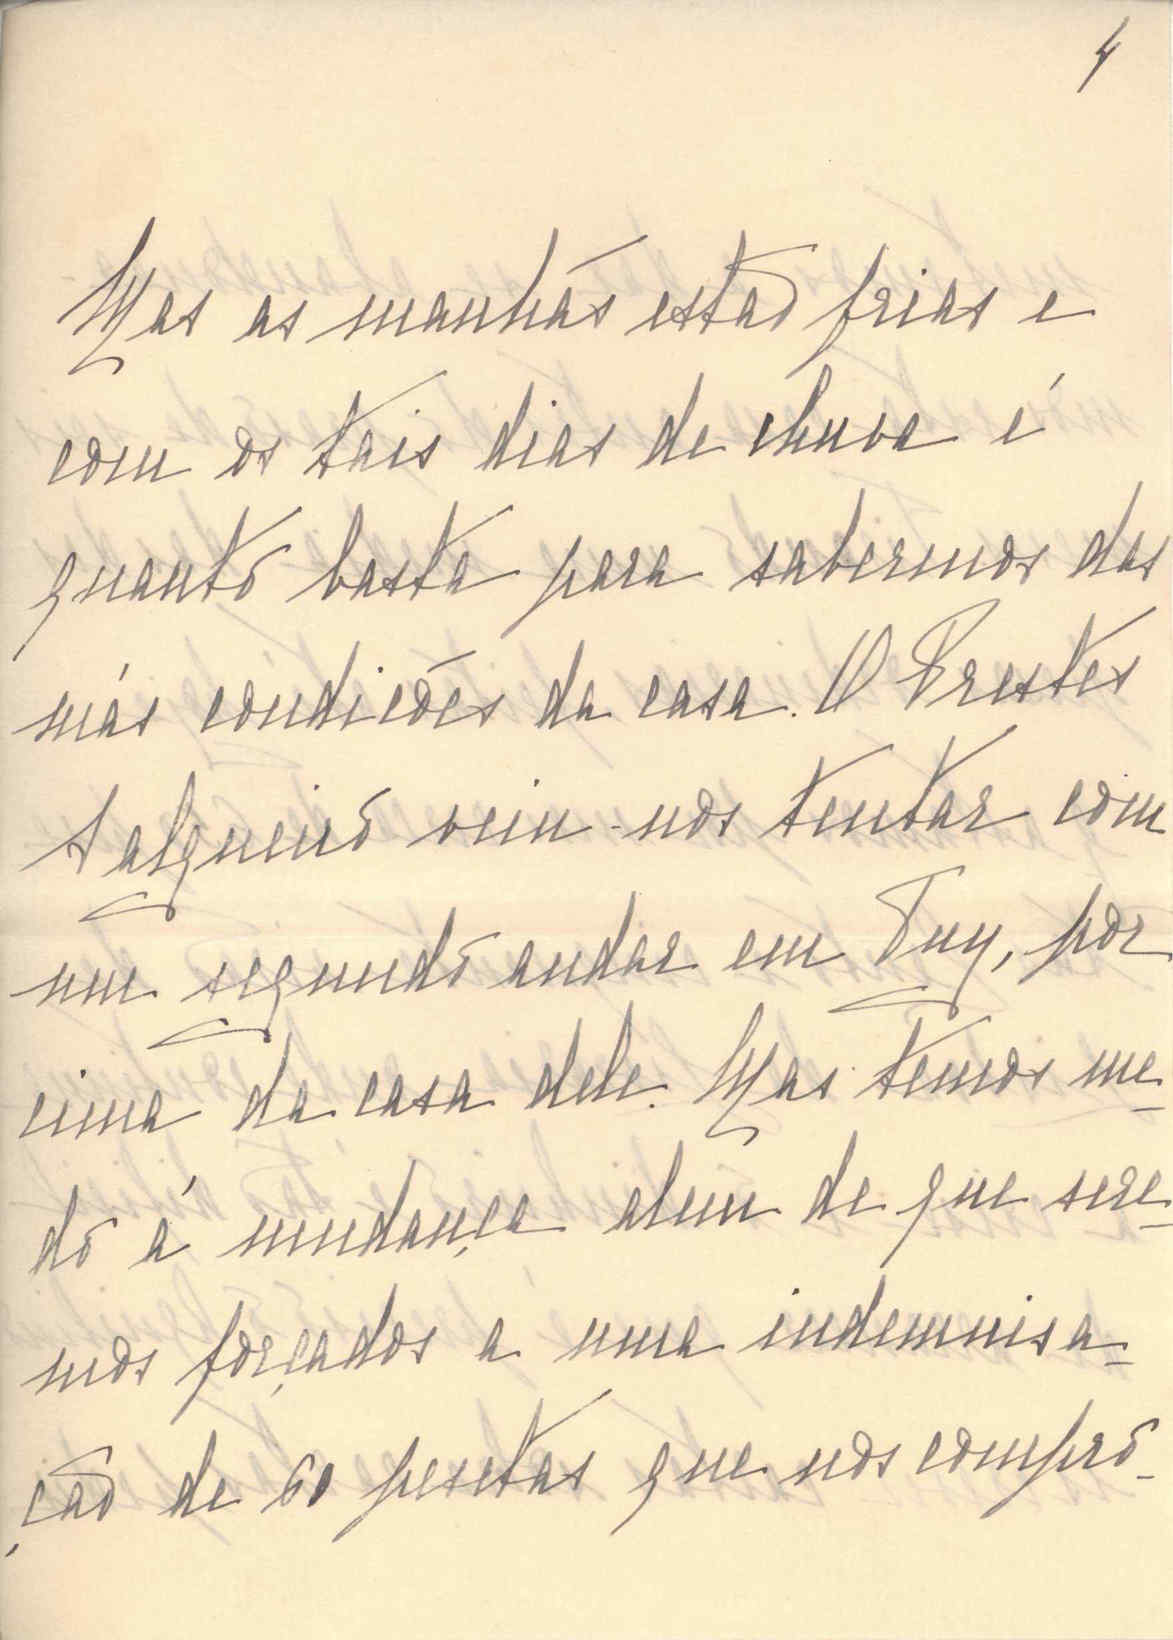 4
Mas as manhãs estão frias e
com os tais dias de chuva é
quanto basta para sabermos das
más condições da casa. O Prestes
Salgueiro veiu-nos tentar com
um segundo andar em Tuy, por
cima da casa dele. Mas temos me-
do á mudança alem de que sere-
mos forçados a uma indemnisa-
ção de 60 pesetas que nos compro-